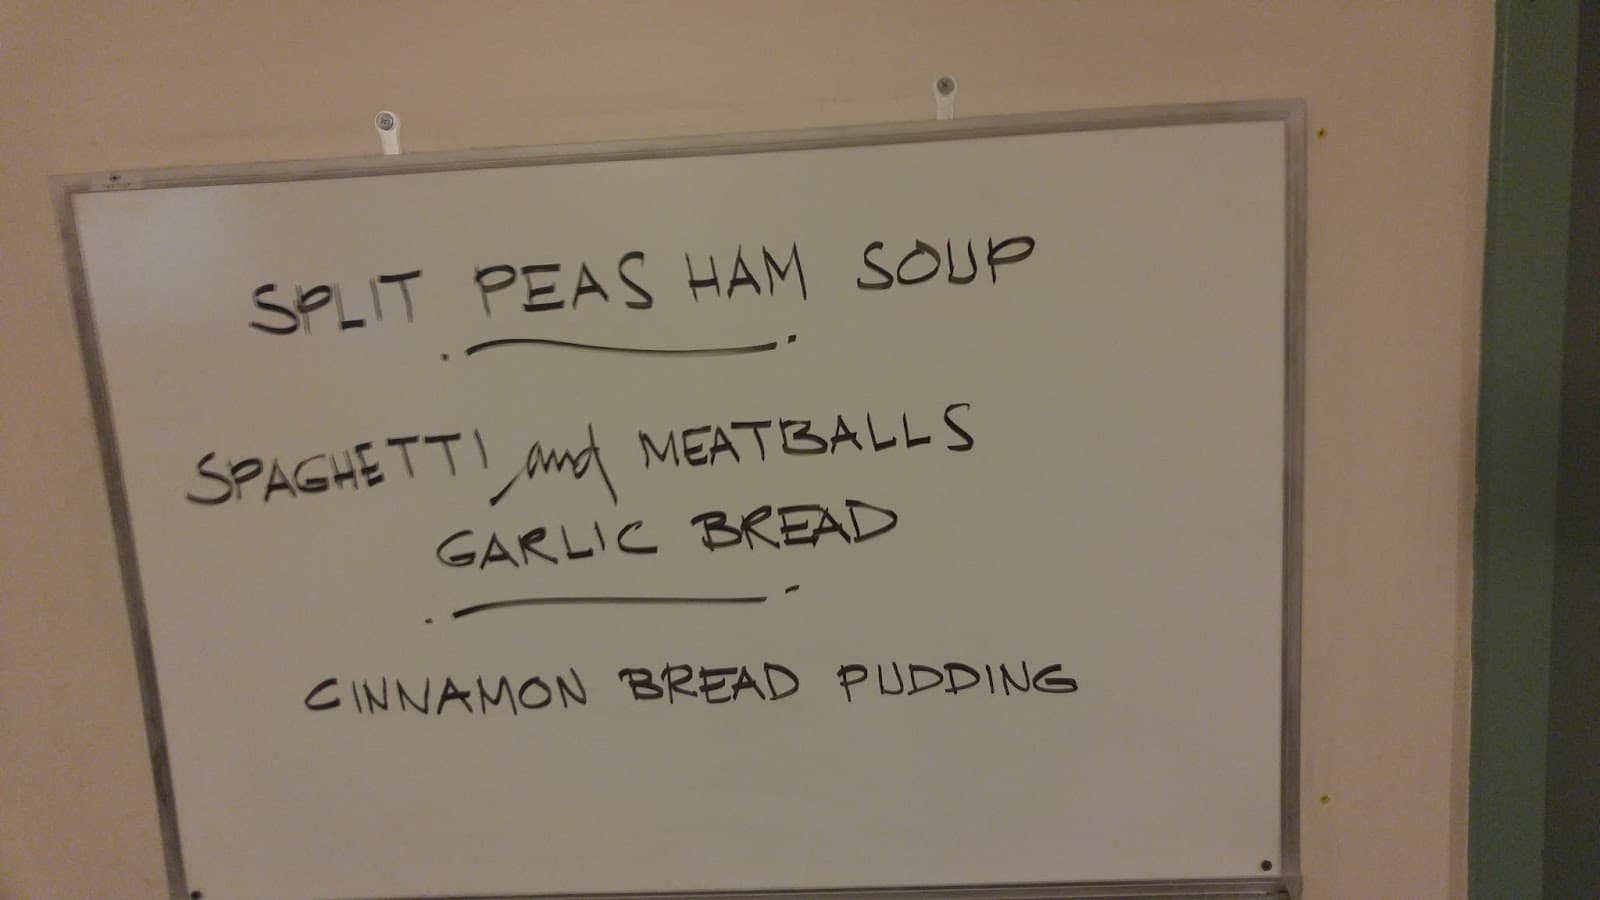 SPLIT PEAS HAM SOUP
SPAGHETTI and MEATBALLS
GARLIC BREAD
CINNAMON BREAD PUDDING